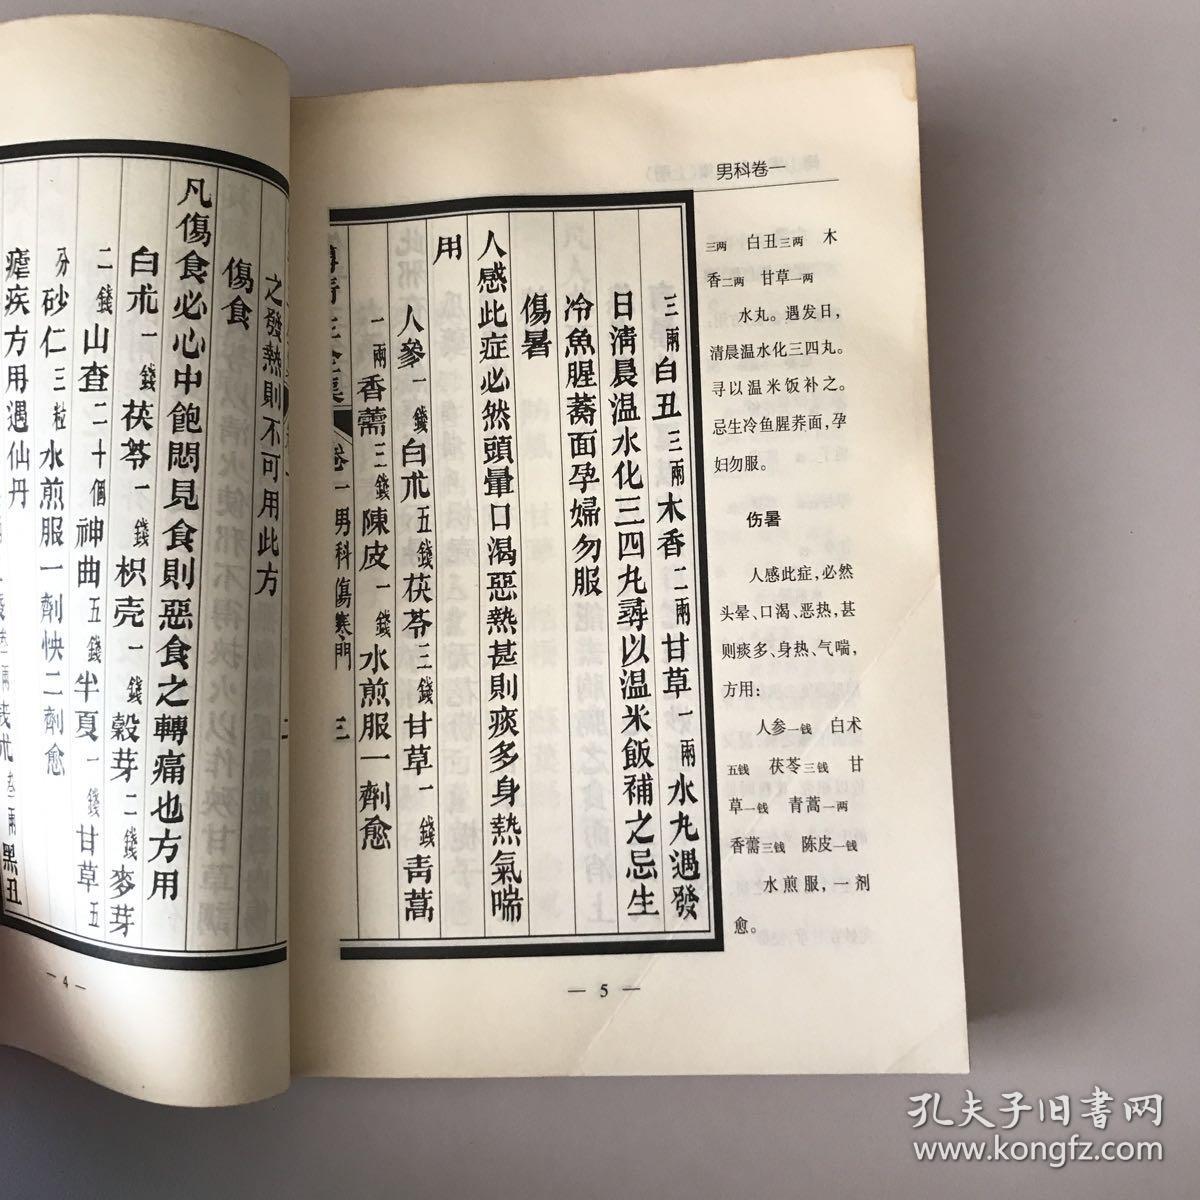 男科卷一
三兩白丑三兩木香二兩甘草一兩水丸遇發
日清晨温水化三四丸尋以温米飯補之忌生
冷魚腥蕎面孕婦勿服
傷暑
人感此症必然頭暈口渴惡熱甚則痰多身熱氣喘
用
人參一錢白朮五錢茯苓三錢甘草一錢青蒿
一兩香薷三錢陳皮一錢水煎服一劑愈
卷一男科傷寒門 三
三两 白丑三两 木
香二两 甘草一两
水丸。遇发日，
清晨温水化三四丸。
寻以温米饭补之。
忌生冷鱼腥荞面，孕
妇勿服。
伤暑
人感此症，必然
头晕、口渴、恶热，甚
则痰多、身热、气喘，
方用：
人参一钱 白术
五钱 茯苓三钱 甘
草一钱 青蒿一两
香薷三钱 陈皮一钱
水煎服，一剂
愈。
— 5 —
之發熱則不可用此方
傷食
凡傷食必心中飽悶見食則惡食之轉痛也方用
白朮一錢茯苓一錢枳壳一錢穀芽二錢麥芽
二錢山查二十個神曲五錢半夏一錢甘草五
分砂仁三粒水煎服一劑快二劑愈
瘧疾方用遇仙丹
— 4 —
孔夫子旧书网
www.kongfz.com